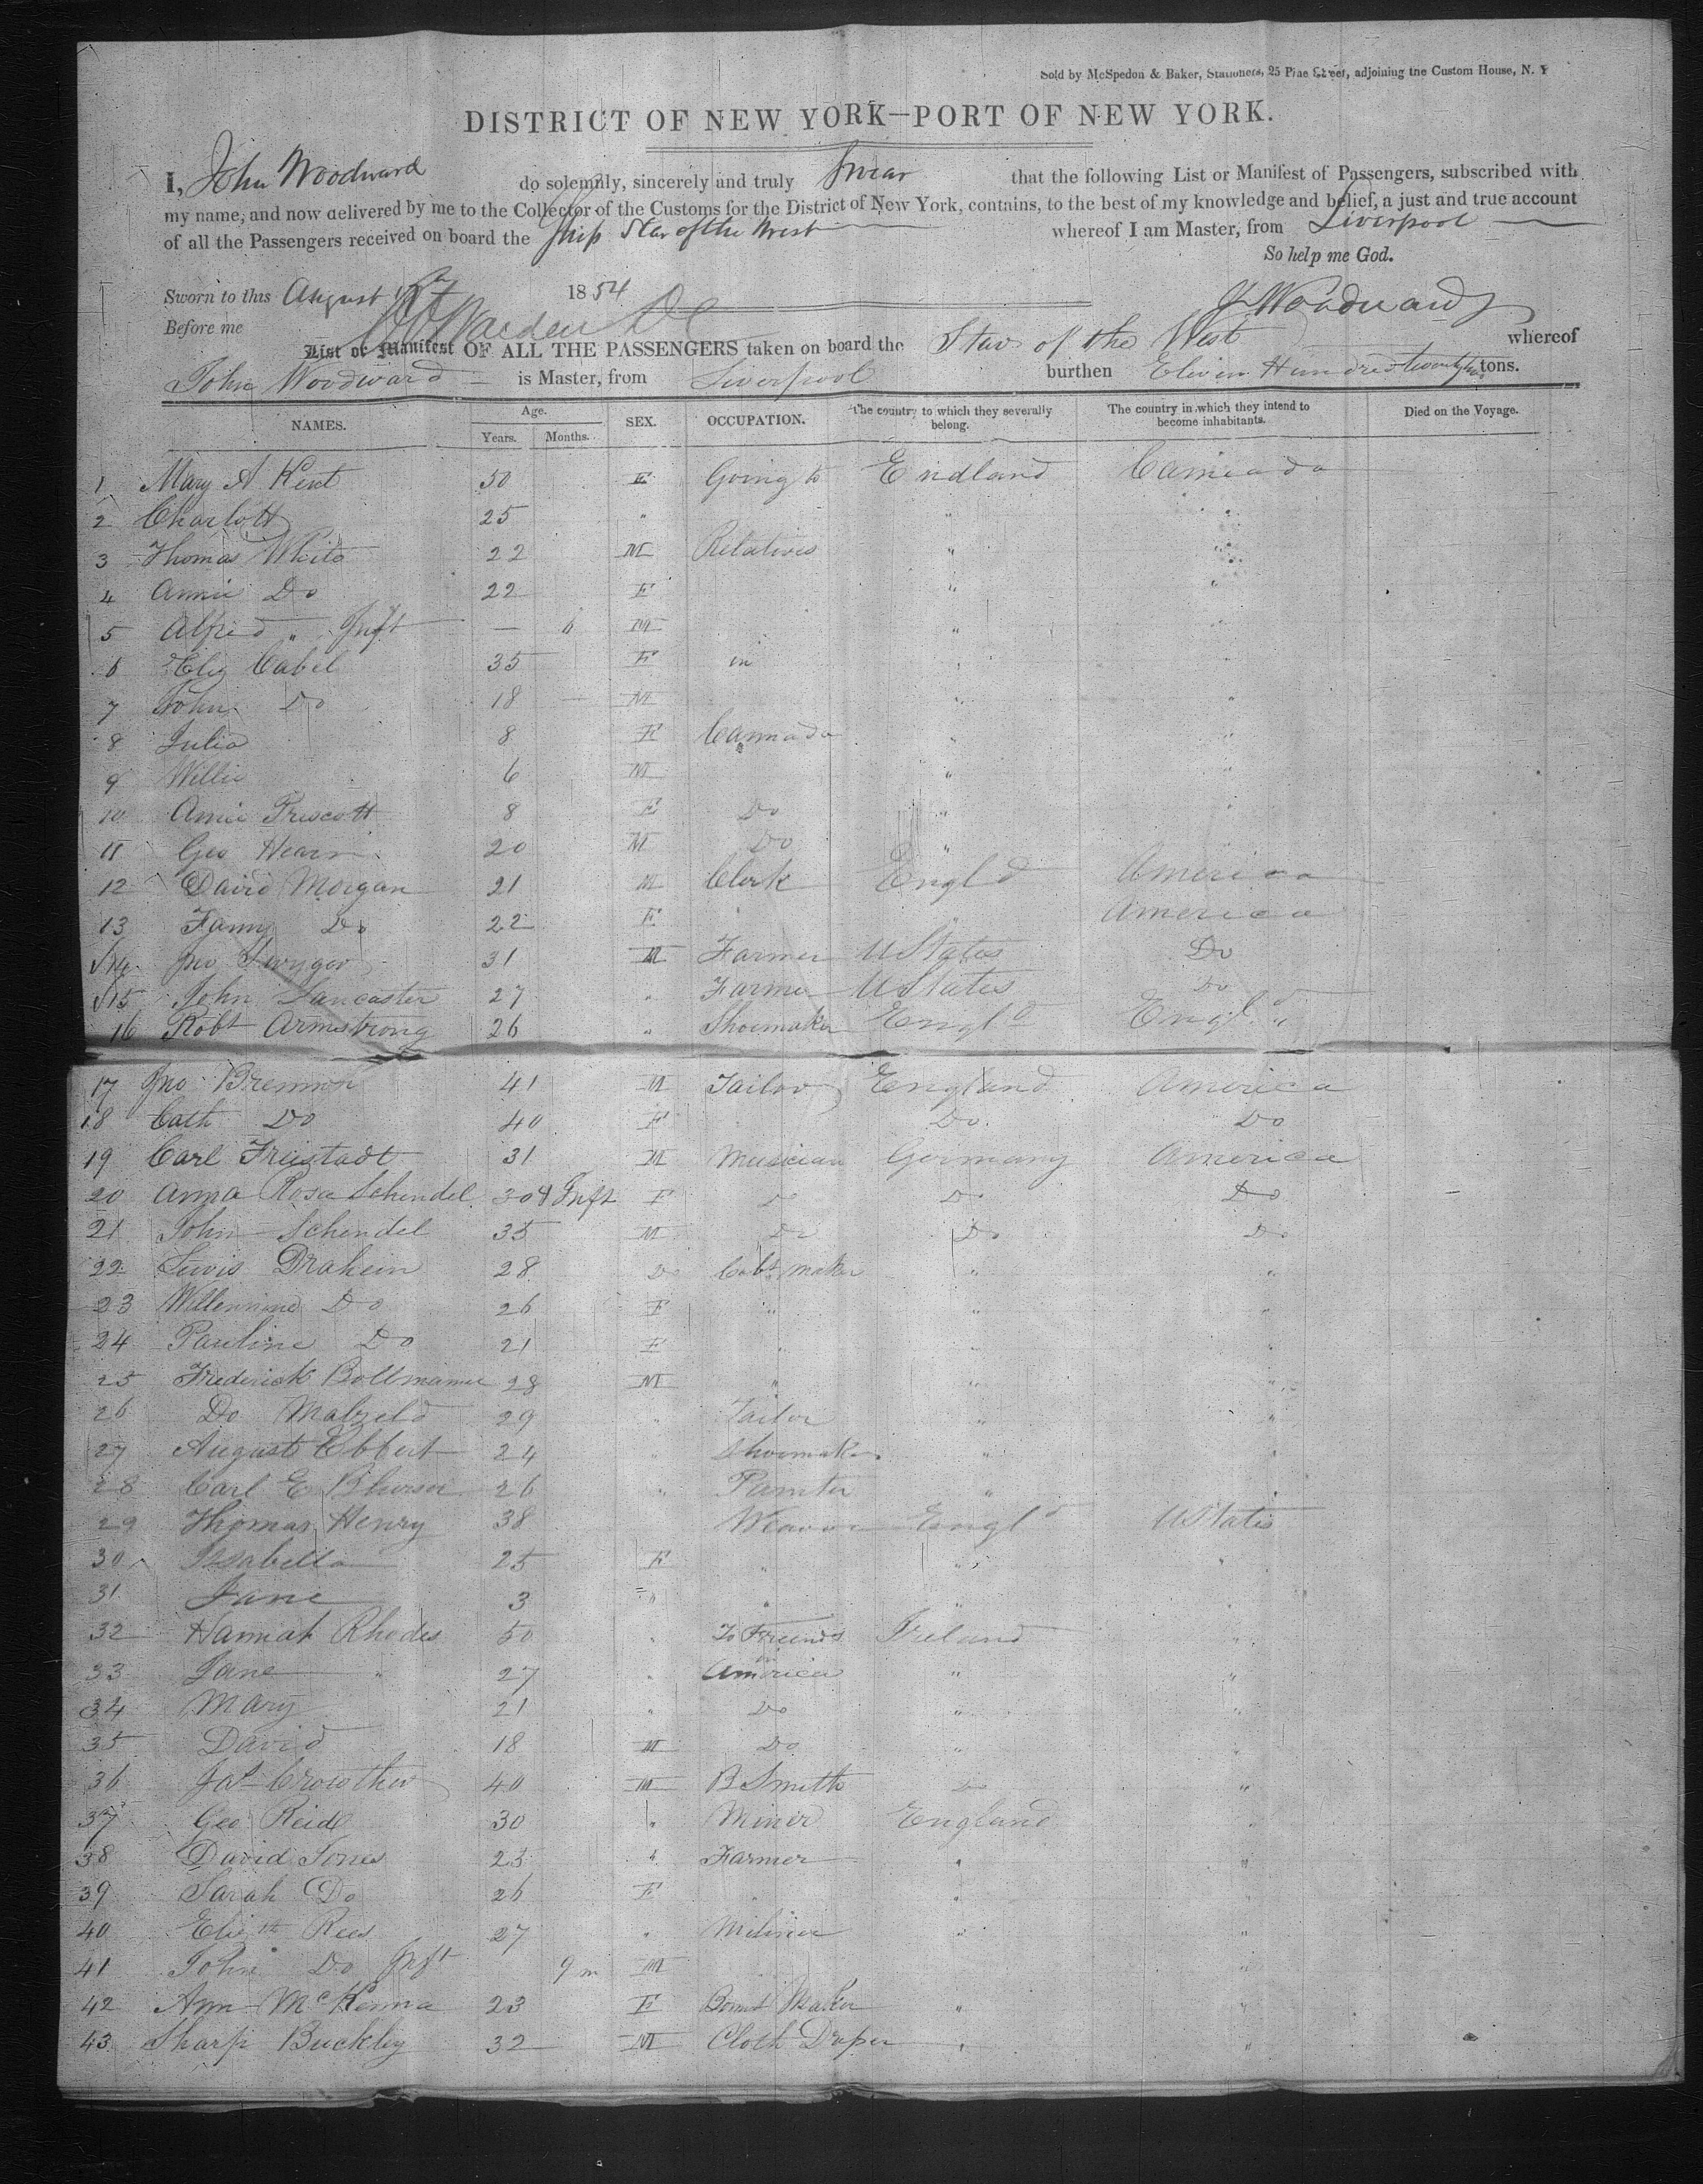 Sold by McSpedon & Baker, Stationers, 25 Pine Street, adjoining the Custom House, N. Y
DISTRICT OF NEW YORK—PORT OF NEW YORK.
I, John Woodward do solemnly, sincerely and truly Swear that the following List or Manifest of Passengers, subscribed with
my name, and now delivered by me to the Collector of the Customs for the District of New York, contains, to the best of my knowledge and belief, a just and true account
of all the Passengers received on board the Ship Star of the West whereof I am Master, from Liverpool
So help me God.
Sworn to this August 1854 J Woodward
Before me
List or Manifest OF ALL THE PASSENGERS taken on board the Star of the West whereof
John Woodward is Master, from Liverpool burthen Eleven Hundred tons.
NAMES. Age. Years. Months. SEX. OCCUPATION. The country to which they severally belong. The country in which they intend to become inhabitants. Died on the Voyage.
1 Mary A Kent 50 F Going to Endland Cannada
2 Charlott 25 " " "
3 Thomas White 22 M Relatives " "
4 Annie Do 22 F " "
5 Alfred " Inft — 6 M " "
6 Eliz Cabel 35 F in " "
7 John Do 18 — M " "
8 Julia 8 F Cannada " "
9 Willie 6 M " "
10 Amie Prescott 8 F Do " "
11 Geo Hearn 20 M Do "
12 David Morgan 21 M Clerk Engld America
13 Fanny Do 22 F " " America
14 Jno 31 M Farmer UStates Do
15 John Lancaster 27 " Farmer UStates Do
16 Robt Armstrong 26 " Shoemaker Engld Engld
17 Jno Brennon 41 M Tailor England America
18 Cath Do 40 F Do Do
19 Carl Freistadt 31 M Musician Germany America
20 Anna Rosa Schendel 30 & Inft F Do Do Do
21 John Schendel 35 M Do Do Do
22 Lewis Drahein 28 Do Cabt maker " "
23 Willemine Do 26 F " " "
24 Pauline Do 21 F " " "
25 Frederick Bollmanne 28 M " " "
26 Do Malzeld 29 " Tailor " "
27 August Ebbert 24 " Shoemaker " "
28 Carl E 26 " Painter "
29 Thomas Henry 38 Weaver Engld UStates
30 Issabella 25 F " " "
31 Jane 3 " " " "
32 Hannah Rhodes 50 " To Friends Ireland "
33 Jane " 27 " in America " "
34 Mary 21 " Do " "
35 David 18 M Do " "
36 Jas Crowther 40 M B Smith Do "
37 Geo Reid 30 " Miner England "
38 David Jones 23 " Farmer " "
39 Sarah Do 26 F " "
40 Elizth Rees 27 " Miliner " "
41 John Do Inft 9 m M "
42 Ann McKenna 23 F Bonnet Maker " "
43 Sharp Buckley 32 M Cloth Draper " "